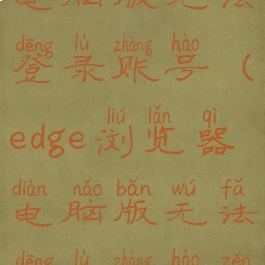 电脑版无法
dēng lù zhàng hào
登录账号（
liú lǎn qì
edge浏览器
diàn nǎo bǎn wú fǎ
电脑版无法
dēng lù zhàng hào zěn